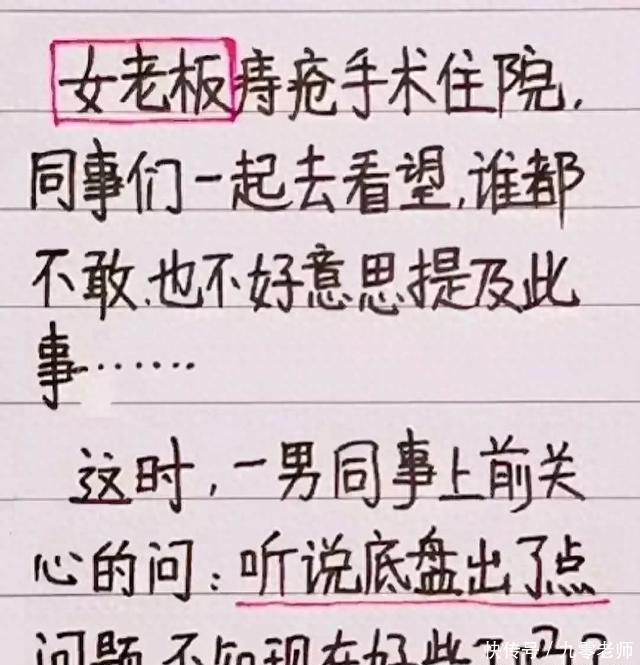 女老板痔疮手术住院,
同事们一起去看望,谁都
不敢.也不好意思提及此
事……
这时,一男同事上前关
心的问:听说底盘出了点
问题,不知现在好些了
快传号/九零老师